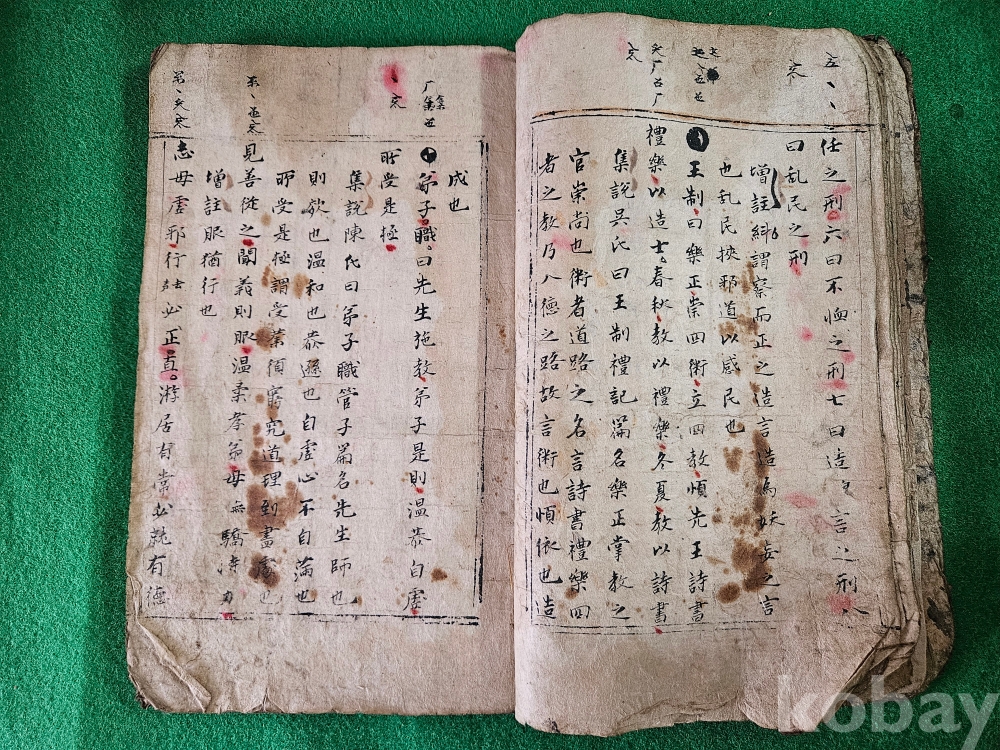 任之刑六曰不恤之刑七曰造言之刑八
曰乱民之刑
增註糾謂察而正之造言造為妖妄之言
也乱民挾邪道以惑民也
王制曰樂正崇四術立四教順先王詩書
禮樂以造士春秋教以禮樂冬夏教以詩書
集說吳氏曰王制禮記篇名樂正掌教之
官崇尚也術者道路之名言詩書禮樂四
者之教乃入德之路故言術也順依也造
成也
弟子職曰先生施教弟子是則温恭自虛
所受是極
集說陳氏曰弟子職管子篇名先生師也
則效也温和也恭遜也自虛心不自滿也
所受是極謂受業須窮究道理到盡處也
見善從之聞義則服温柔孝弟毋驕恃力
增註服猶行也
志毋虛邪行必正直游居有常必就有德
kobay